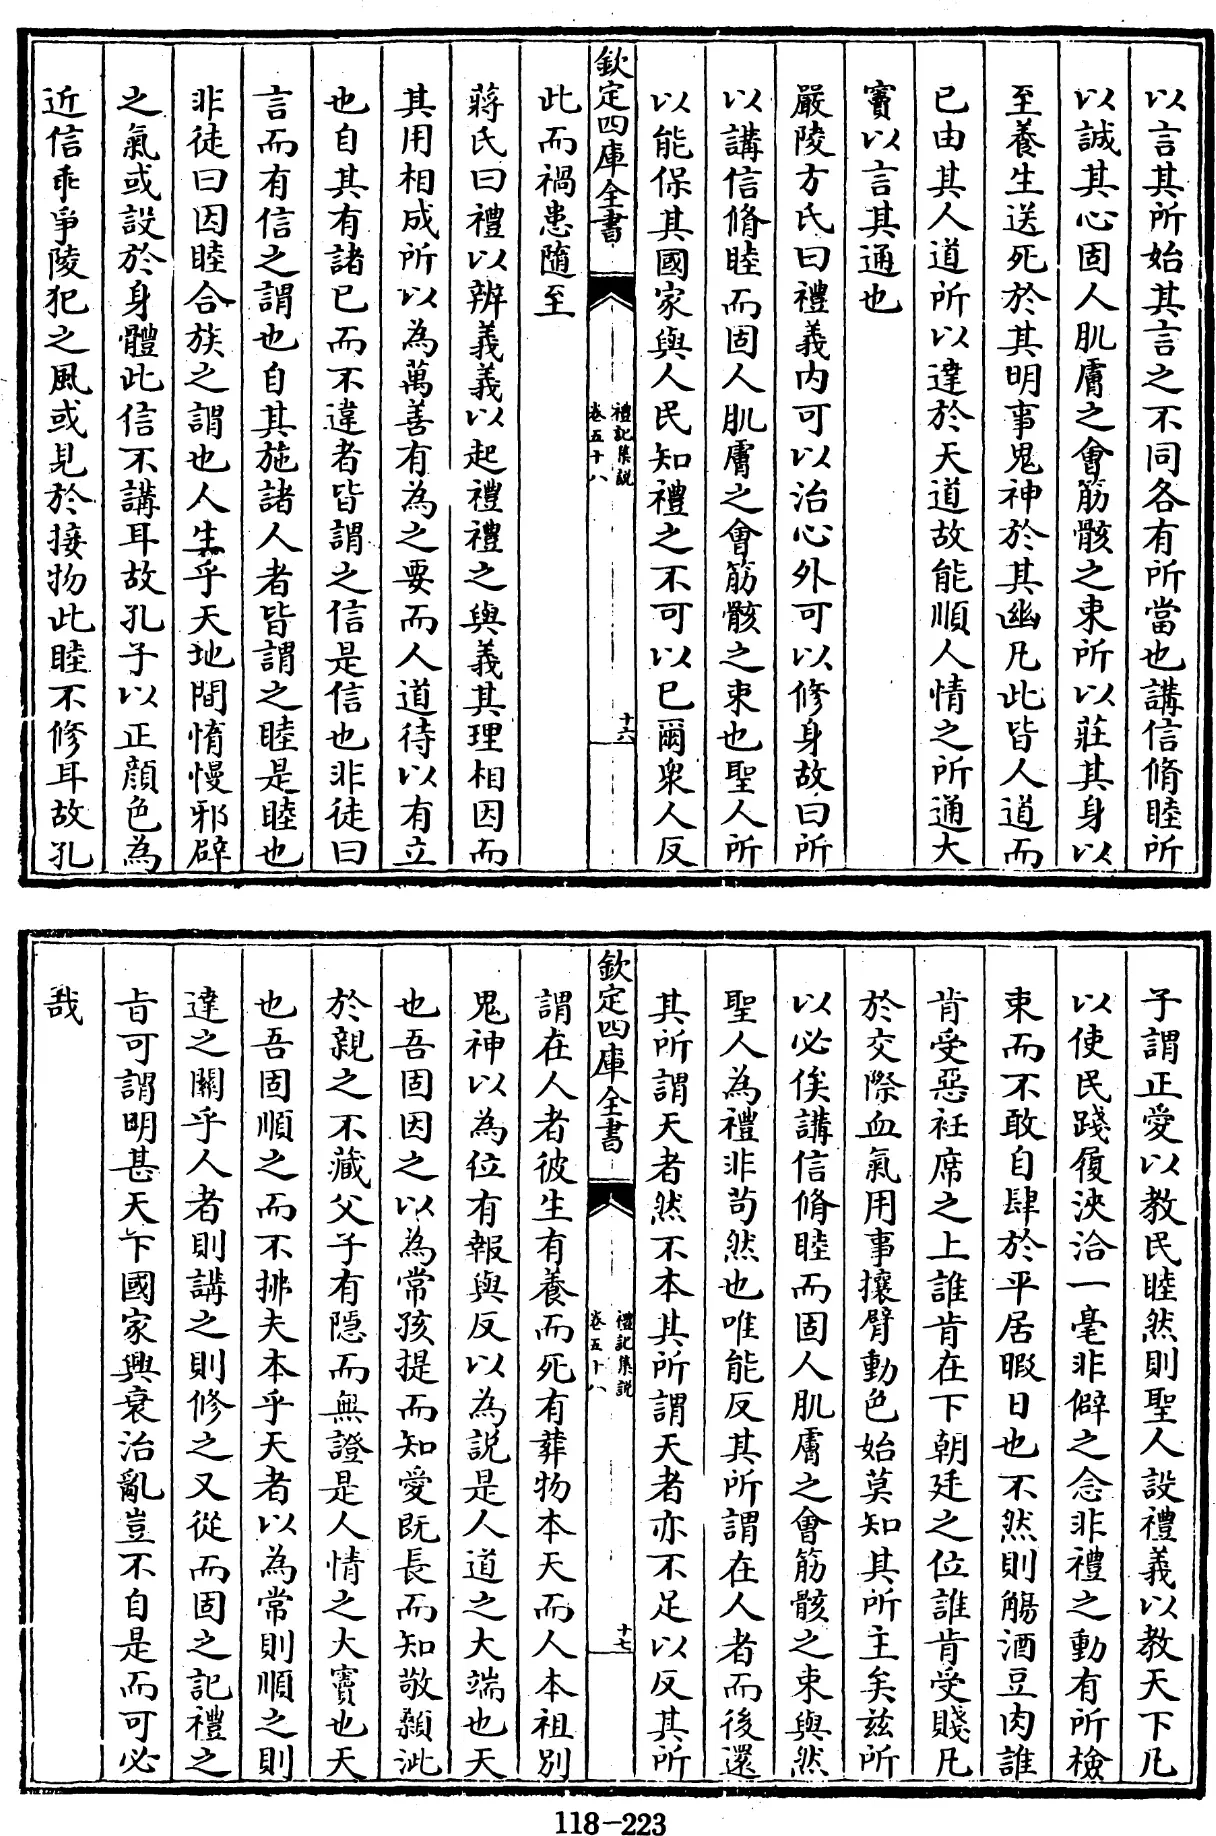 以言其所始其言之不同各有所當也講信脩睦所
以誠其心固人肌膚之會筋骸之束所以莊其身以
至養生送死於其明事鬼神於其幽凡此皆人道而
已由其人道所以達於天道故能順人情之所通大
竇以言其通也
嚴陵方氏曰禮義内可以治心外可以修身故曰所
以講信脩睦而固人肌膚之會筋骸之束也聖人所
以能保其國家與人民知禮之不可以已爾衆人反
欽定四庫全書
禮記集説
卷五十八
十六
此而禍患隨至
蔣氏曰禮以辨義義以起禮禮之與義其理相因而
其用相成所以為萬善有為之要而人道待以有立
也自其有諸已而不違者皆謂之信是信也非徒曰
言而有信之謂也自其施諸人者皆謂之睦是睦也
非徒曰因睦合族之謂也人生乎天地間惰慢邪辟
之氣或設於身體此信不講耳故孔子以正顔色為
近信乖爭陵犯之風或見於接物此睦不修耳故孔
子謂正愛以教民睦然則聖人設禮義以教天下凡
以使民踐履浹洽一毫非僻之念非禮之動有所檢
束而不敢自肆於平居暇日也不然則觴酒豆肉誰
肯受惡衽席之上誰肯在下朝廷之位誰肯受賤凡
於交際血氣用事攘臂動色始莫知其所主矣兹所
以必俟講信脩睦而固人肌膚之會筋骸之束與然
聖人為禮非苟然也唯能反其所謂在人者而後還
其所謂天者然不本其所謂天者亦不足以反其所
欽定四庫全書
禮記集説
卷五十八
十七
謂在人者彼生有養而死有葬物本天而人本祖别
鬼神以為位有報與反以為説是人道之大端也天
也吾固因之以為常孩提而知愛既長而知敬顙泚
於親之不藏父子有隠而無證是人情之大竇也天
也吾固順之而不拂夫本乎天者以為常則順之則
達之關乎人者則講之則修之又從而固之記禮之
㫖可謂明甚天下國家興衰治亂豈不自是而可必
哉
118-223